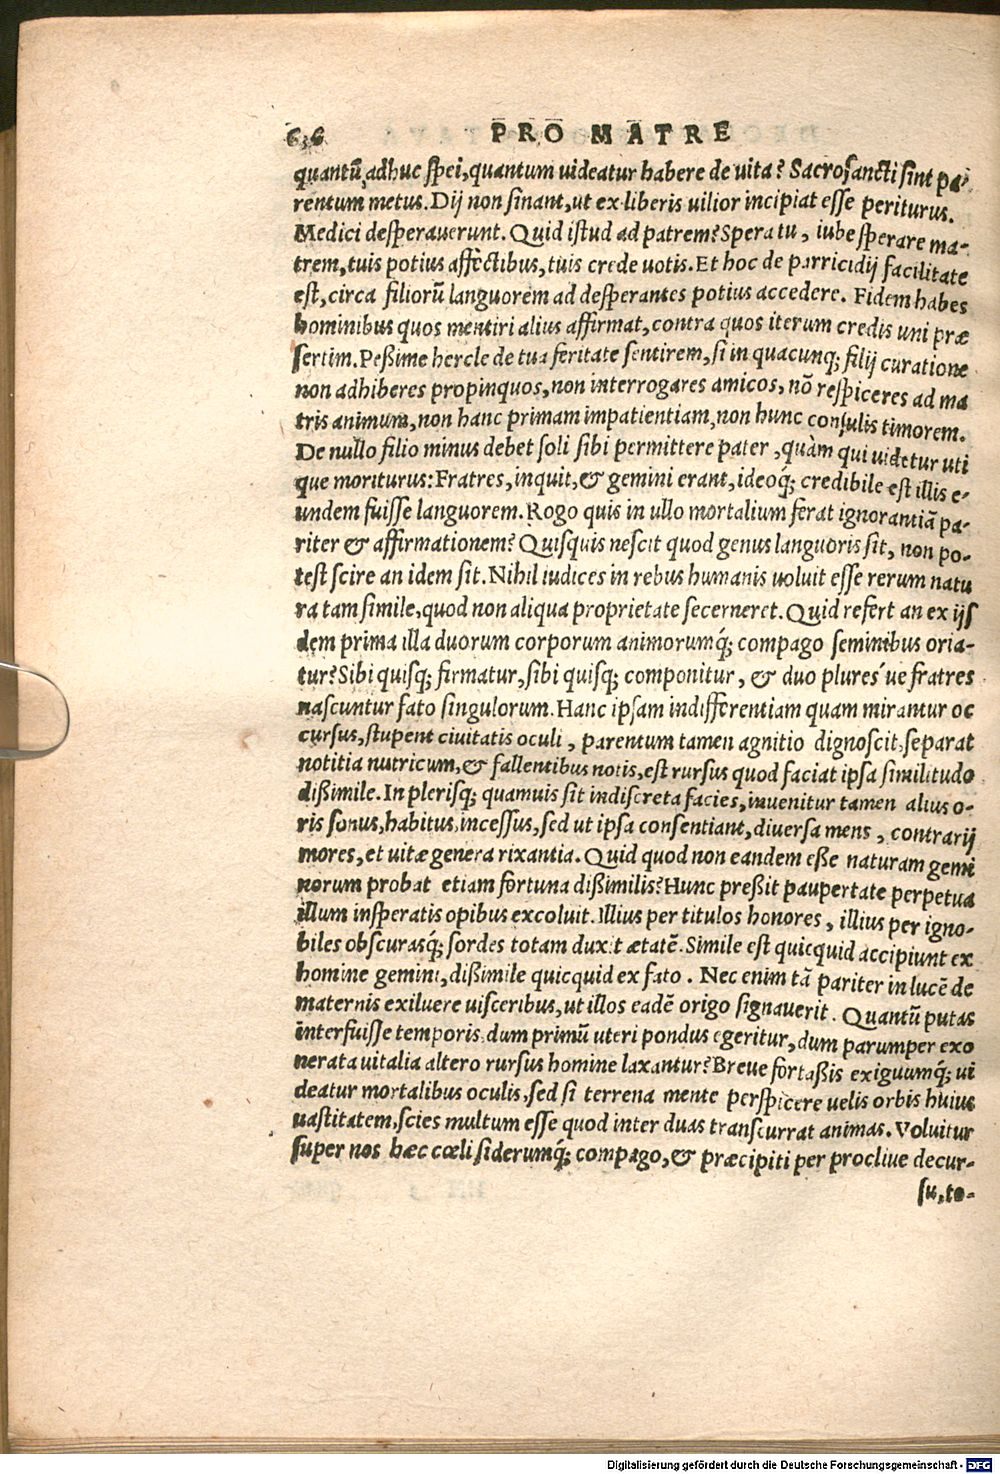 66 PRO MATRE
quantū adhuc spei, quantum uideatur habere de uita? Sacrosancti sint pa-
rentum metus. Dij non sinant, ut ex liberis uilior incipiat esse periturus.
Medici desperauerunt. Quid istud ad patrem? Spera tu, iube sperare ma-
trem, tuis potius affectibus, tuis crede uotis. Et hoc de parricidij facilitate
est, circa filiorū languorem ad desperantes potius accedere. Fidem habes
hominibus quos mentiri alius affirmat, contra quos iterum credis uni præ
sertim. Peßime hercle de tua feritate sentirem, si in quacunq; filij curatione
non adhiberes propinquos, non interrogares amicos, nō respiceres ad ma
tris animum, non hanc primam impatientiam, non hunc consulis timorem.
De nullo filio minus debet soli sibi permittere pater, quàm qui uidetur uti
que moriturus: Fratres, inquit, & gemini erant, ideoq́; credibile est illis e-
undem fuisse languorem. Rogo quis in ullo mortalium ferat ignorantiā pa-
riter & affirmationem? Quisquis nescit quod genus languoris sit, non po-
test scire an idem sit. Nihil iudices in rebus humanis uoluit esse rerum natu
ra tam simile, quod non aliqua proprietate secerneret. Quid refert an ex ijs
dem prima illa duorum corporum animorumq́; compago seminibus oria-
tur? Sibi quisq; firmatur, sibi quisq; componitur, & duo plures´ue fratres
nascuntur fato singulorum. Hanc ipsam indifferentiam quam mirantur oc
cursus, stupent ciuitatis oculi, parentum tamen agnitio dignoscit, separat
notitia nutricum, & fallentibus notis, est rursus quod faciat ipsa similitudo
dißimile. In plerisq; quamuis sit indiscreta facies, inuenitur tamen alius o-
ris sonus, habitus, incessus, sed ut ipsa consentiant, diuersa mens, contrarij
mores, et uitæ genera rixantia. Quid quod non eandem eße naturam gemi
norum probat etiam fortuna dißimilis? Hunc preßit paupertate perpetua
illum insperatis opibus excoluit. Illius per titulos honores, illius per igno-
biles obscurasq́; sordes totam duxit ætatē. Simile est quicquid accipiunt ex
homine gemini, dißimile quicquid ex fato. Nec enim tā pariter in lucē de
maternis exiluere uisceribus, ut illos eadē origo signauerit. Quantū putas
interfuisse temporis dum primū uteri pondus egeritur, dum parumper exo
nerata uitalia altero rursus homine laxantur? Breue fortaßis exiguumq́; ui
deatur mortalibus oculis, sed si terrena mente perspicere uelis orbis huius
uastitatem, scies multum esse quod inter duas transcurrat animas. Voluitur
super nos hæc cœli siderumq́; compago, & præcipiti per procliue decur-
su, to-
Digitalisierung gefördert durch die Deutsche Forschungsgemeinschaft - DFG